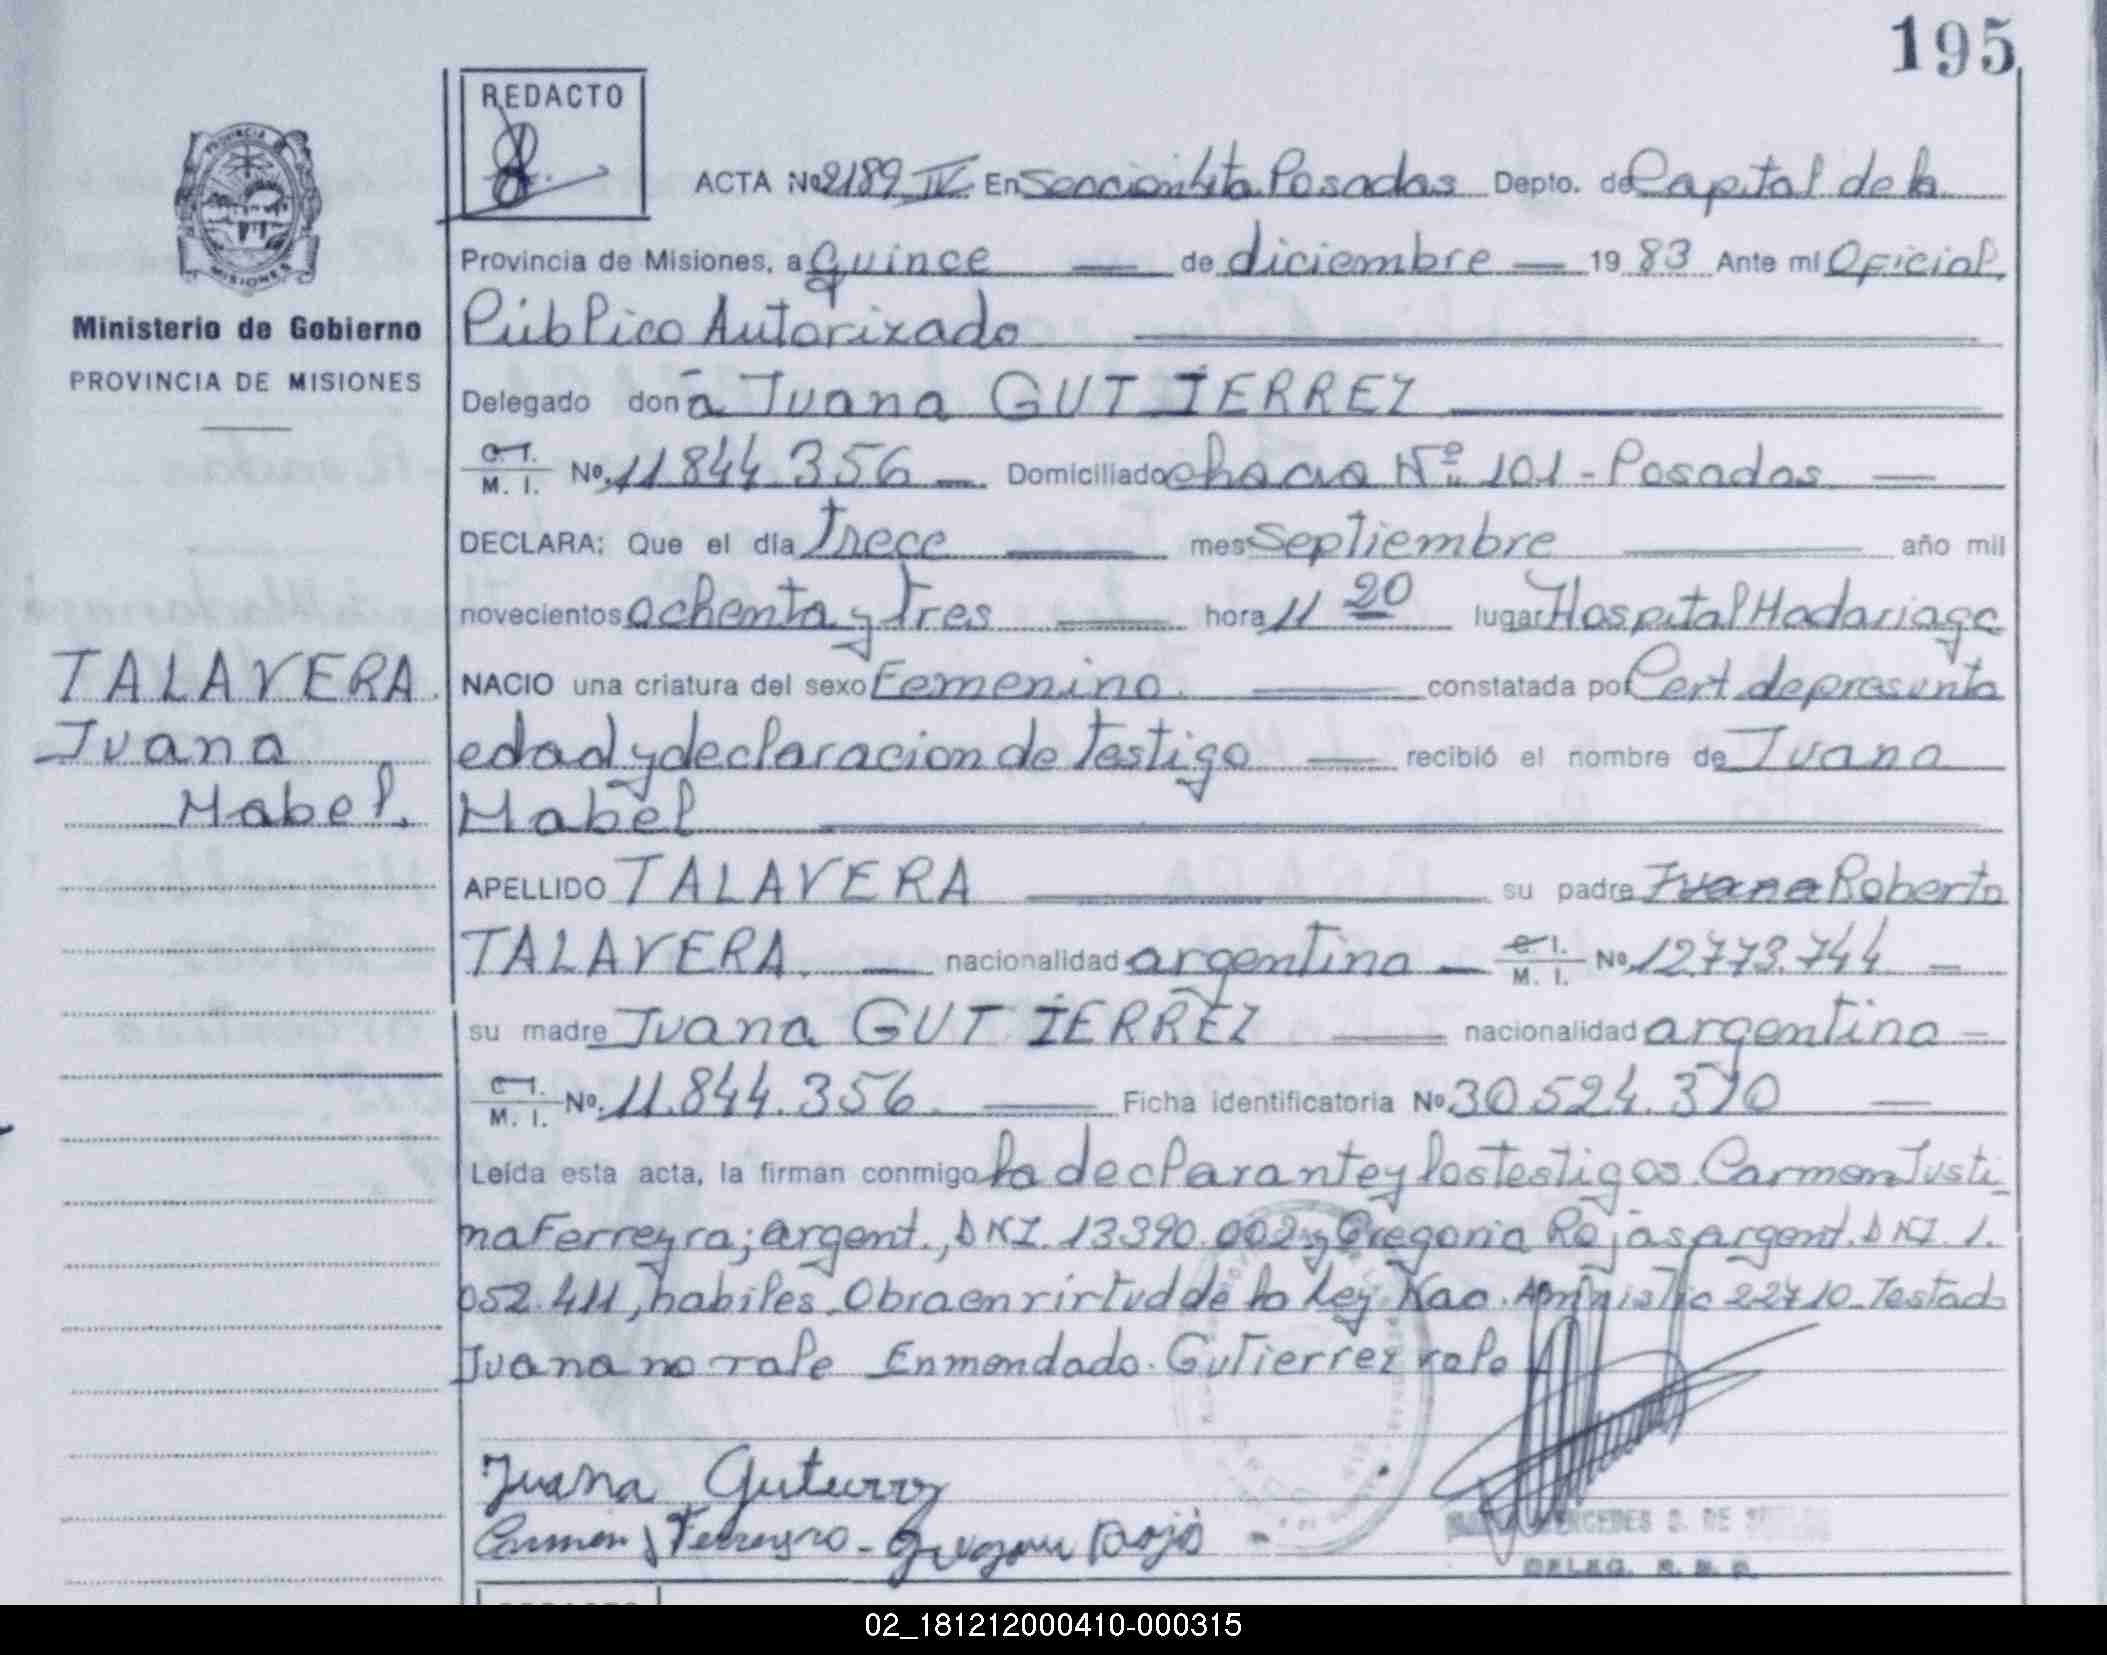 195
REDACTO
PROVINCIA
MISIONES
Ministerio de Gobierno
PROVINCIA DE MISIONES
TALAVERA
Juana
Mabel.
ACTA Nº 2189 IV En Seccion 4ta Posadas Depto. de Capital de la
Provincia de Misiones, a Quince — de diciembre — 19 83 Ante mi Oficial
Público Autorizado
Delegado doña Juana GUTIERREZ
C. I. M. I. Nº 11.844.356 — Domiciliado chacra Nº 101 - Posadas —
DECLARA: Que el día trece — mes Septiembre — año mil
novecientos ochenta y tres — hora 11 20 lugar Hospital Madariaga
NACIO una criatura del sexo Femenino. — constatada por Cert de presunta
edad y declaracion de testigo — recibió el nombre de Juana
Mabel
APELLIDO TALAVERA — su padre Juana Roberto
TALAVERA. — nacionalidad argentina — C. I. M. I. Nº 12.773.744 —
su madre Juana GUTIERREZ — nacionalidad argentina —
C. I. M. I. Nº 11.844.356. — Ficha identificatoria Nº 30.524.370 —
Leída esta acta, la firman conmigo la declarante y los testigos. Carmen Justi
na Ferreyra; argent., DNI. 13.390.002 y Gregoria Rojas argent. DNI. 1.
052.411, habiles. Obra en virtud de la Ley Nac. Amnistia 22710. Testado
Juana no vale Enmendado. Gutierrez vale
Juana Gutierrez
Carmen J Ferreyra - Rojas
MERCEDES S. DE
DELEG. R. P.
02_181212000410-000315